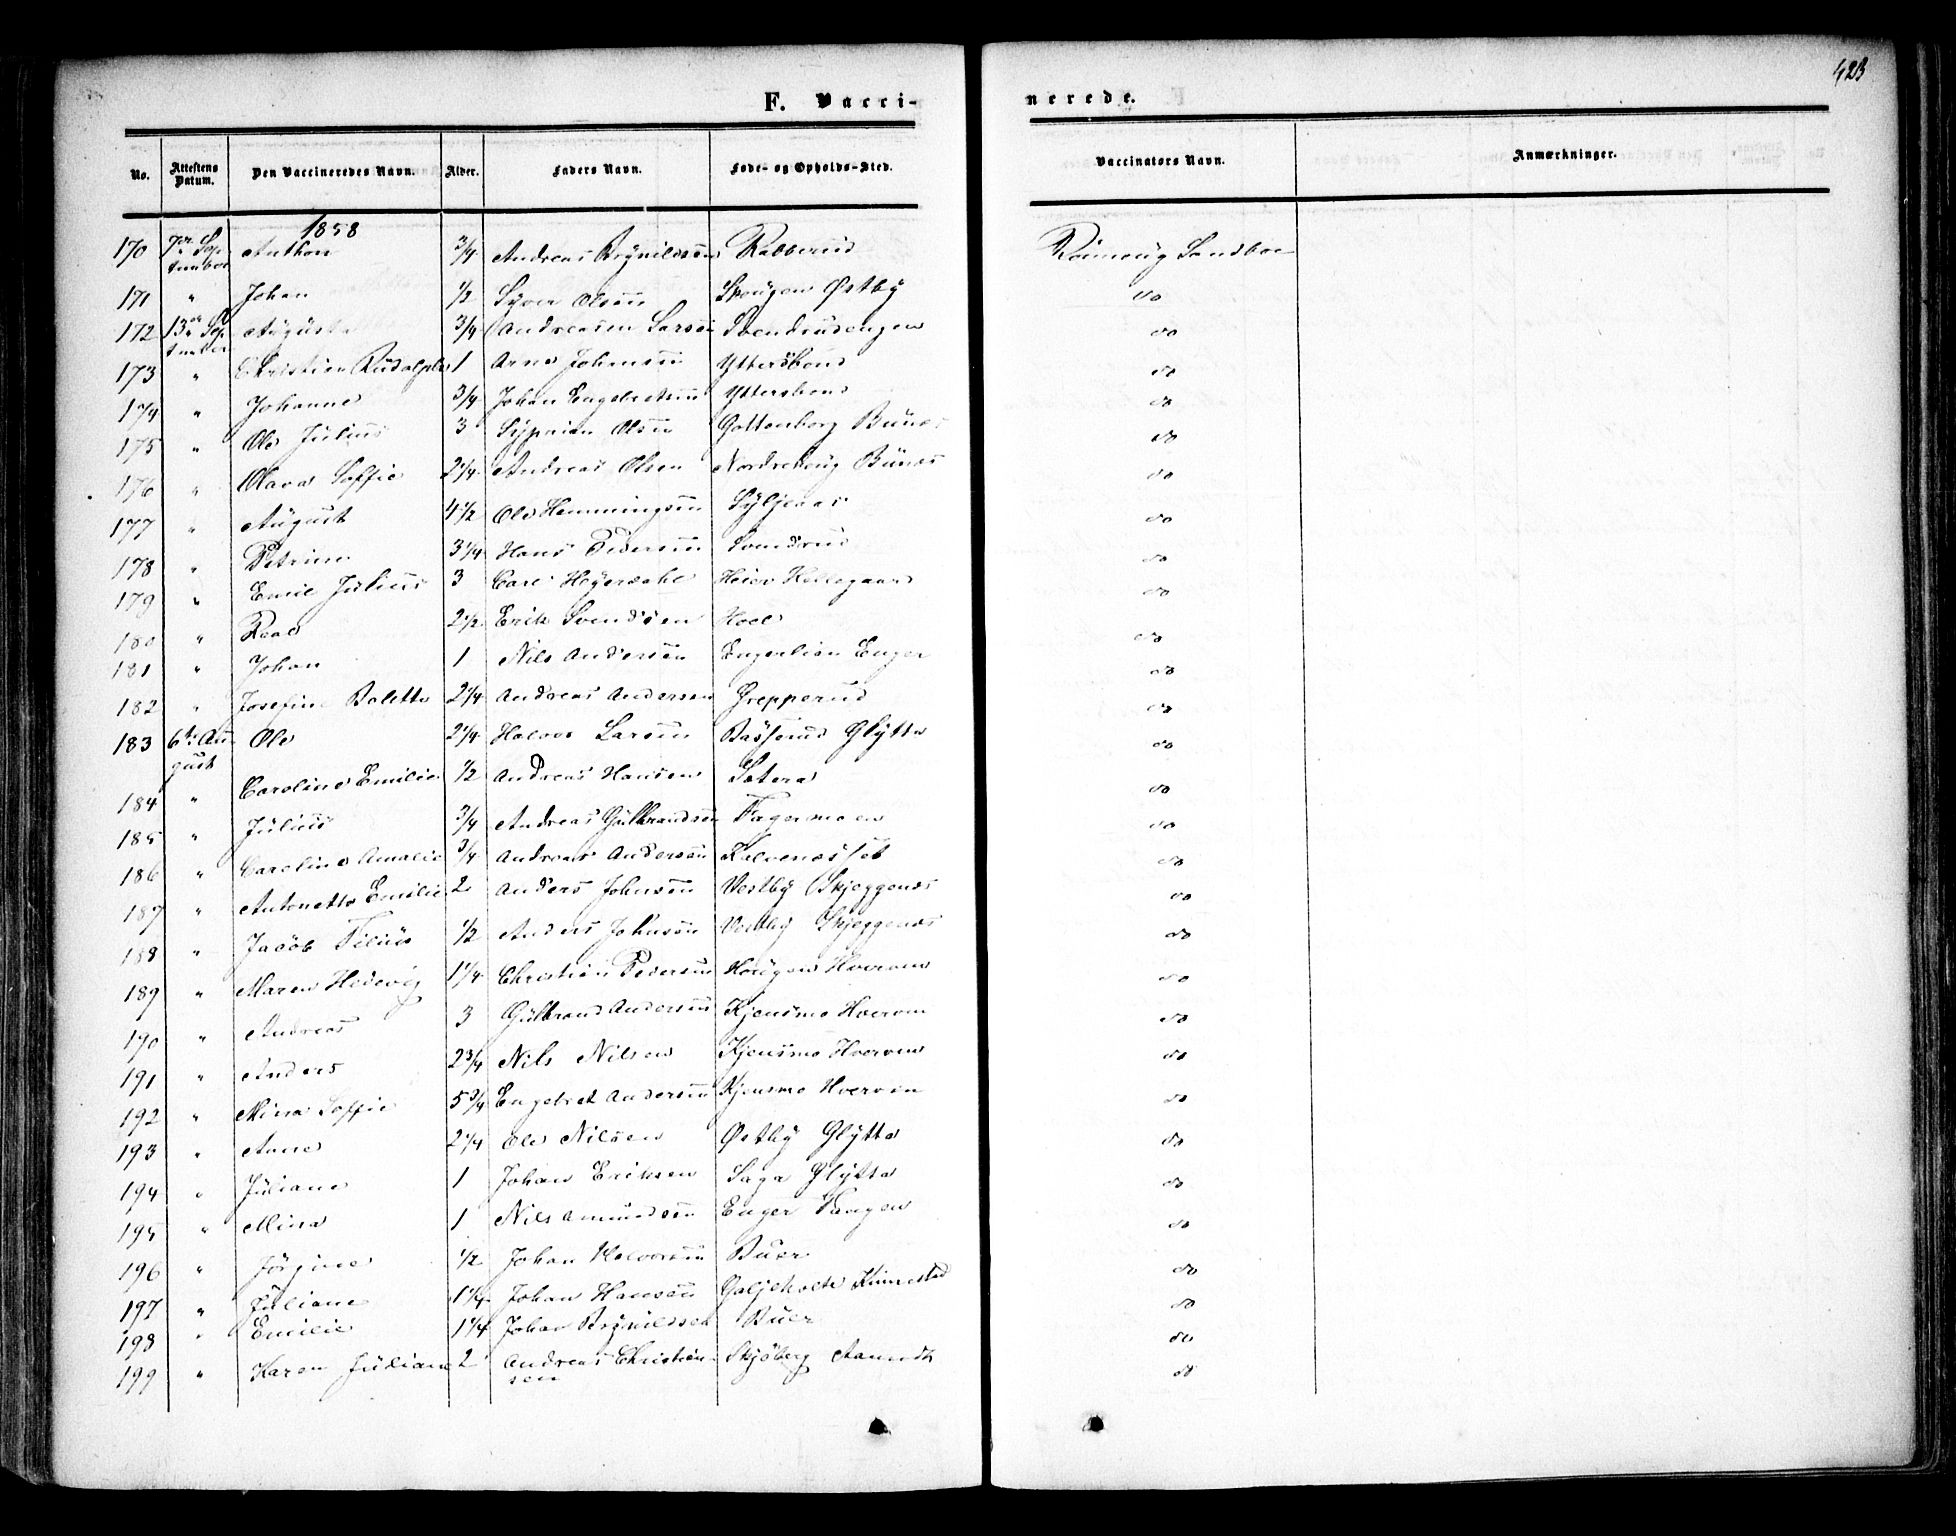 423
F. Vacci-
nerede.
No. Attestens Datum. Den Vaccineredes Navn. Alder. Faders Navn. Føde- og Opholds-Sted. Vaccinators Navn. Anmærkninger.
1858
170 7de Sep- Anthon 3/4 Andreas Brynildsen Rabberud Sandboe
tember
171 " Johan 1/2 Syver Olsen Skougen Østby do
172 13de Sep- Augusta 3/4 Andreasen Larsen Svendrudengen do
tember
173 " Christian Rudolph 1 Arne Johnsen do
174 " Johanne 3/4 Johan Engebretsen do
175 " Ole Julius 3 Olsen Gottenborg Bunæs do
176 " Olava Soffie 2 1/4 Andreas Olsen Nordrehoug Bunæs do
177 " August 4 1/2 Ole Hemmingsen do
178 " Petrine 3 1/4 Hans Pedersen Svendrud do
179 " Emil Julius 3 Carl Heyerdahl do
180 " 2 1/2 Erik Svendsen Hoel do
181 " Johan 1 Nils Andersen Engerlien Enger do
182 " Josefine Bolette 2 1/4 Andreas Andersen Grepperud do
183 6te Au- Ole 2 1/4 Halvor Larsen Basserud Glytte do
gust
184 " Caroline Emilie 1/2 Andreas Hansen Sætera do
185 " Julius 3/4 Andreas Gulbrandsen Fagermoen do
186 " Caroline Amalie 3/4 Andreas Andersen do
187 " Antonette Emilie 2 Anders Johnsen Vestby Skjeggenæs do
188 " Jacob 1/2 Anders Johnsen Vestby Skjeggenæs do
189 " Maren Hedevig 1 1/4 Christian Pedersen Hougen Hverven do
190 " Andreas 3 Gulbrand Andersen Kjensmo Hverven do
191 " Anders 2 3/4 Nils Nilsen Kjensmo Hverven do
192 " Mina Soffie 5 3/4 Engebret Andersen Kjensmo Hverven do
193 " Anne 2 1/4 Ole Nilsen Østby Glytte do
194 " Juliane 1 Johan Eriksen Saga Glytte do
195 " Mina 1 Nils Amundsen Enger Tangen do
196 " Jørgine 1/2 Johan Halvorsen Buer do
197 " Juliane 1 1/4 Johan Hansen do
198 " Emilie 1 1/4 Johan Brynildsen Buer do
199 " Karen Juliane 2 Andreas Christian- Skjöberg do
sen